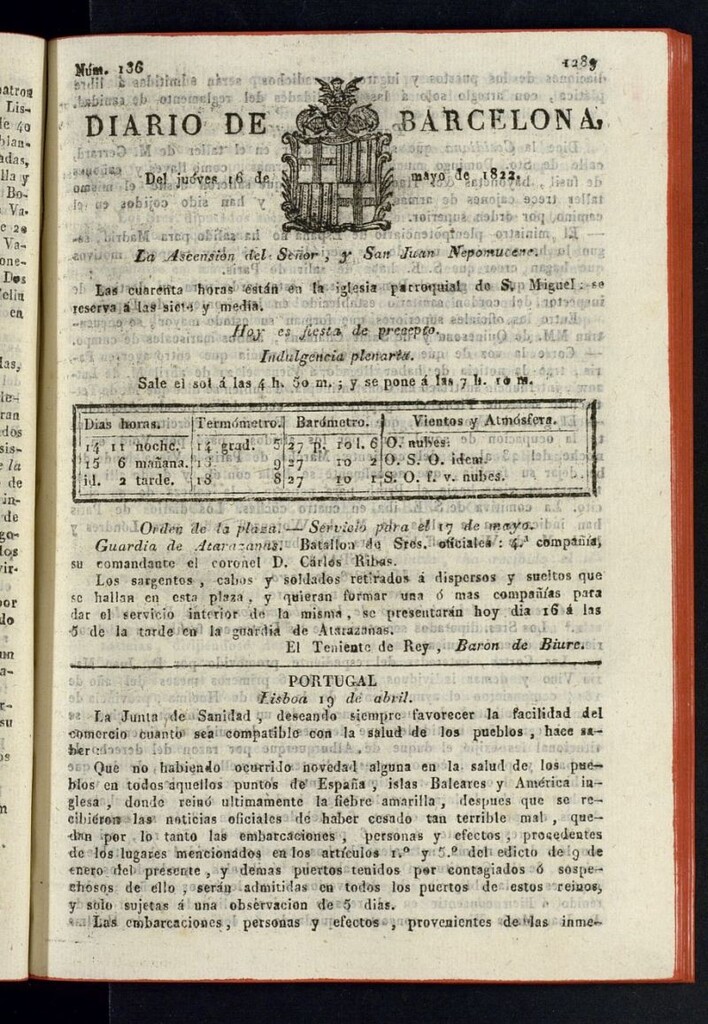 Núm. 136
1289
DIARIO DE BARCELONA,
Del juéves 16 de mayo de 1822.
La Ascension del Señor, y San Juan Nepomuceno.
Las cuarenta horas están en la iglesia parroquial de S. Miguel: se
reserva á las siete y media.
Hoy es fiesta de precepto.
Indulgencia plenaria.
Sale el sol á las 4 h. 50 m.; y se pone á las 7 h. 10 m.
Dias horas. Termómetro. Barómetro. Vientos y Atmósfera.
14 11 noche. 14 grad. 5 27 p. 10 l. 6 O. nubes.
15 6 mañana. 13 9 27 10 2 O. S. O. idem.
id. 2 tarde. 18 8 27 10 1 S. O. f. v. nubes.
Orden de la plaza. — Servicio para el 17 de mayo.
Guardia de Atarazanas. Batallon de Sres. oficiales: 4.ª compañía,
su comandante el coronel D. Cárlos Ribas.
Los sargentos, cabos y soldados retirados á dispersos y sueltos que
se hallan en esta plaza, y quieran formar una ó mas compañías para
dar el servicio interior de la misma, se presentarán hoy dia 16 á las
5 de la tarde en la guardia de Atarazanas.
El Teniente de Rey, Baron de Biure.
PORTUGAL
Lisboa 19 de abril.
La Junta de Sanidad, deseando siempre favorecer la facilidad del
comercio cuanto sea compatible con la salud de los pueblos, hace sa-
ber:
Que no habiendo ocurrido novedad alguna en la salud de los pue-
blos en todos aquellos puntos de España, islas Baleares y América in-
glesa, donde reinó ultimamente la fiebre amarilla, despues que se re-
cibiéron las noticias oficiales de haber cesado tan terrible mal, que-
dan por lo tanto las embarcaciones, personas y efectos, procedentes
de los lugares mencionados en los artículos 1.º y 5.º del edicto de 9 de
enero del presente, y demas puertos tenidos por contagiados ó sospe-
chosos de ello, serán admitidas en todos los puertos de estos reinos,
y solo sujetas á una observacion de 5 dias.
Las embarcaciones, personas y efectos, provenientes de las inme-